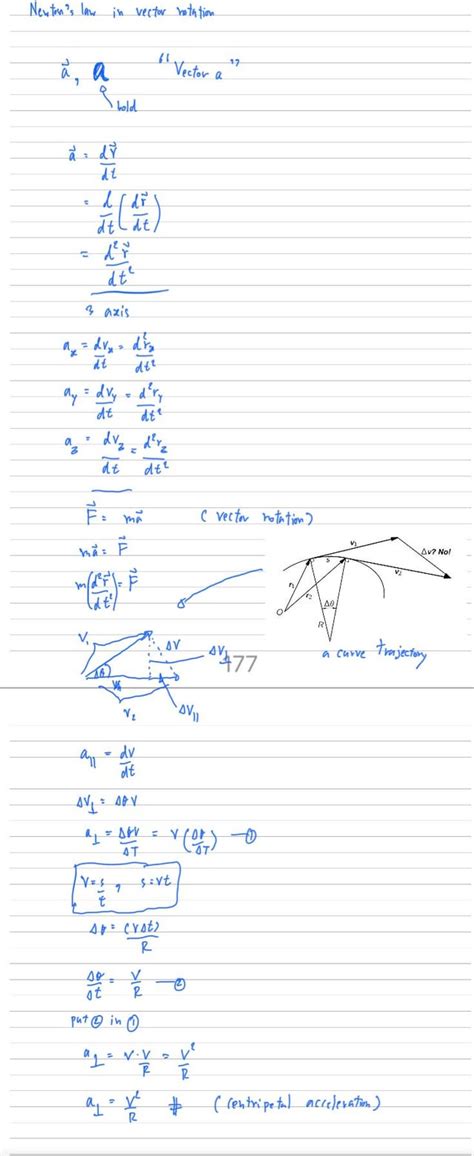 Newton's law in vector notation
a⃗, a "Vector a"
bold
a⃗ = dv⃗/dt
= d/dt (dr⃗/dt)
= d²r⃗/dt²
3 axis
aₓ = dvₓ/dt = d²rₓ/dt²
a_y = dv_y/dt = d²r_y/dt²
a_z = dv_z/dt = d²r_z/dt²
F⃗ = ma⃗ (vector notation)
ma⃗ = F⃗
m(d²r⃗/dt²) = F⃗
v₁ Δv? No!
s v₂
r₁ r₂ Δθ
O
R
a curve trajectory
V₁ ΔV ΔV⊥
Δθ
177
V₂ ΔV∥
a∥ = dv/dt
ΔV⊥ = Δθ V
a⊥ = ΔθV/ΔT = V(Δθ/ΔT) —①
V = s/t , s = vt
Δθ = (VΔt)/R
Δθ/Δt = V/R —②
put ② in ①
a⊥ = V·V/R = V²/R
a⊥ = V²/R # (centripetal acceleration)